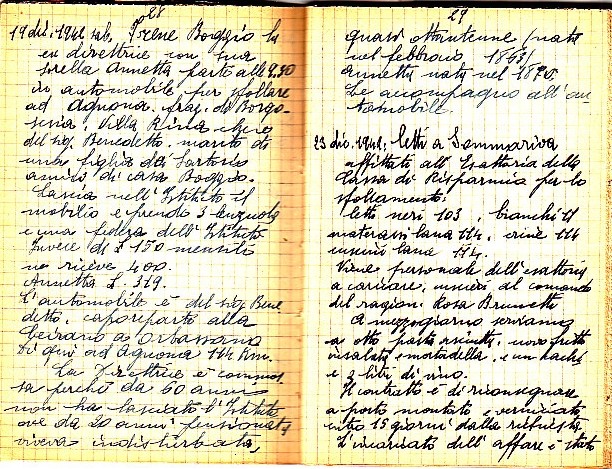 28
19 dic. 1942 sab. Irene Boggio la
ex direttrice con sua
sorella Annetta parte alle 9.30
in automobile per sfollare
ad Agnona, fraz. di Borgo-
sesia, Villa Rina
del sig. Benedetto, marito di
una figlia da Sartorio
amici di casa Boggio.
Lascia nell'Istituto il
mobilio e prende 3 lenzuola
e una federa dell'Istituto
Invece di £ 150 mensili
ne riceve 400.
Annetta £. 319.
L'automobile è del sig. Bene
detto, caporeparto alla
ad Orbassano
Di qui ad Agnona 114 Km.
La Direttrice è commos
sa perché da 60 anni
non ha lasciato l'Istituto
ove da 20 anni pensionata
viveva indisturbata,
29
quasi ottantenne (nata
nel febbraio 1863)
Annetta nata nel 1870.
Le accompagno all'au-
tomobile.
23 dic. 1942. Letti a Sommariva
affittati all'Esattoria della
Cassa di Risparmio per lo
sfollamento:
letti neri 103, bianchi 11
materassi lana 114, crine 114
cuscini lana 114.
Viene personale dell'esattoria
a caricare, uscieri al comando
del ragion. Rosa Brunetti
A mezzogiorno serviamo
a otto pasta asciutta, uovo fritto
insalata e mortadella, e un kachi
e 2 litri di vino.
Il contratto è di riconsegnare
a posto montato e verniciato
entro 15 giorni dalla richiesta
L'incaricato dell'affare è stato